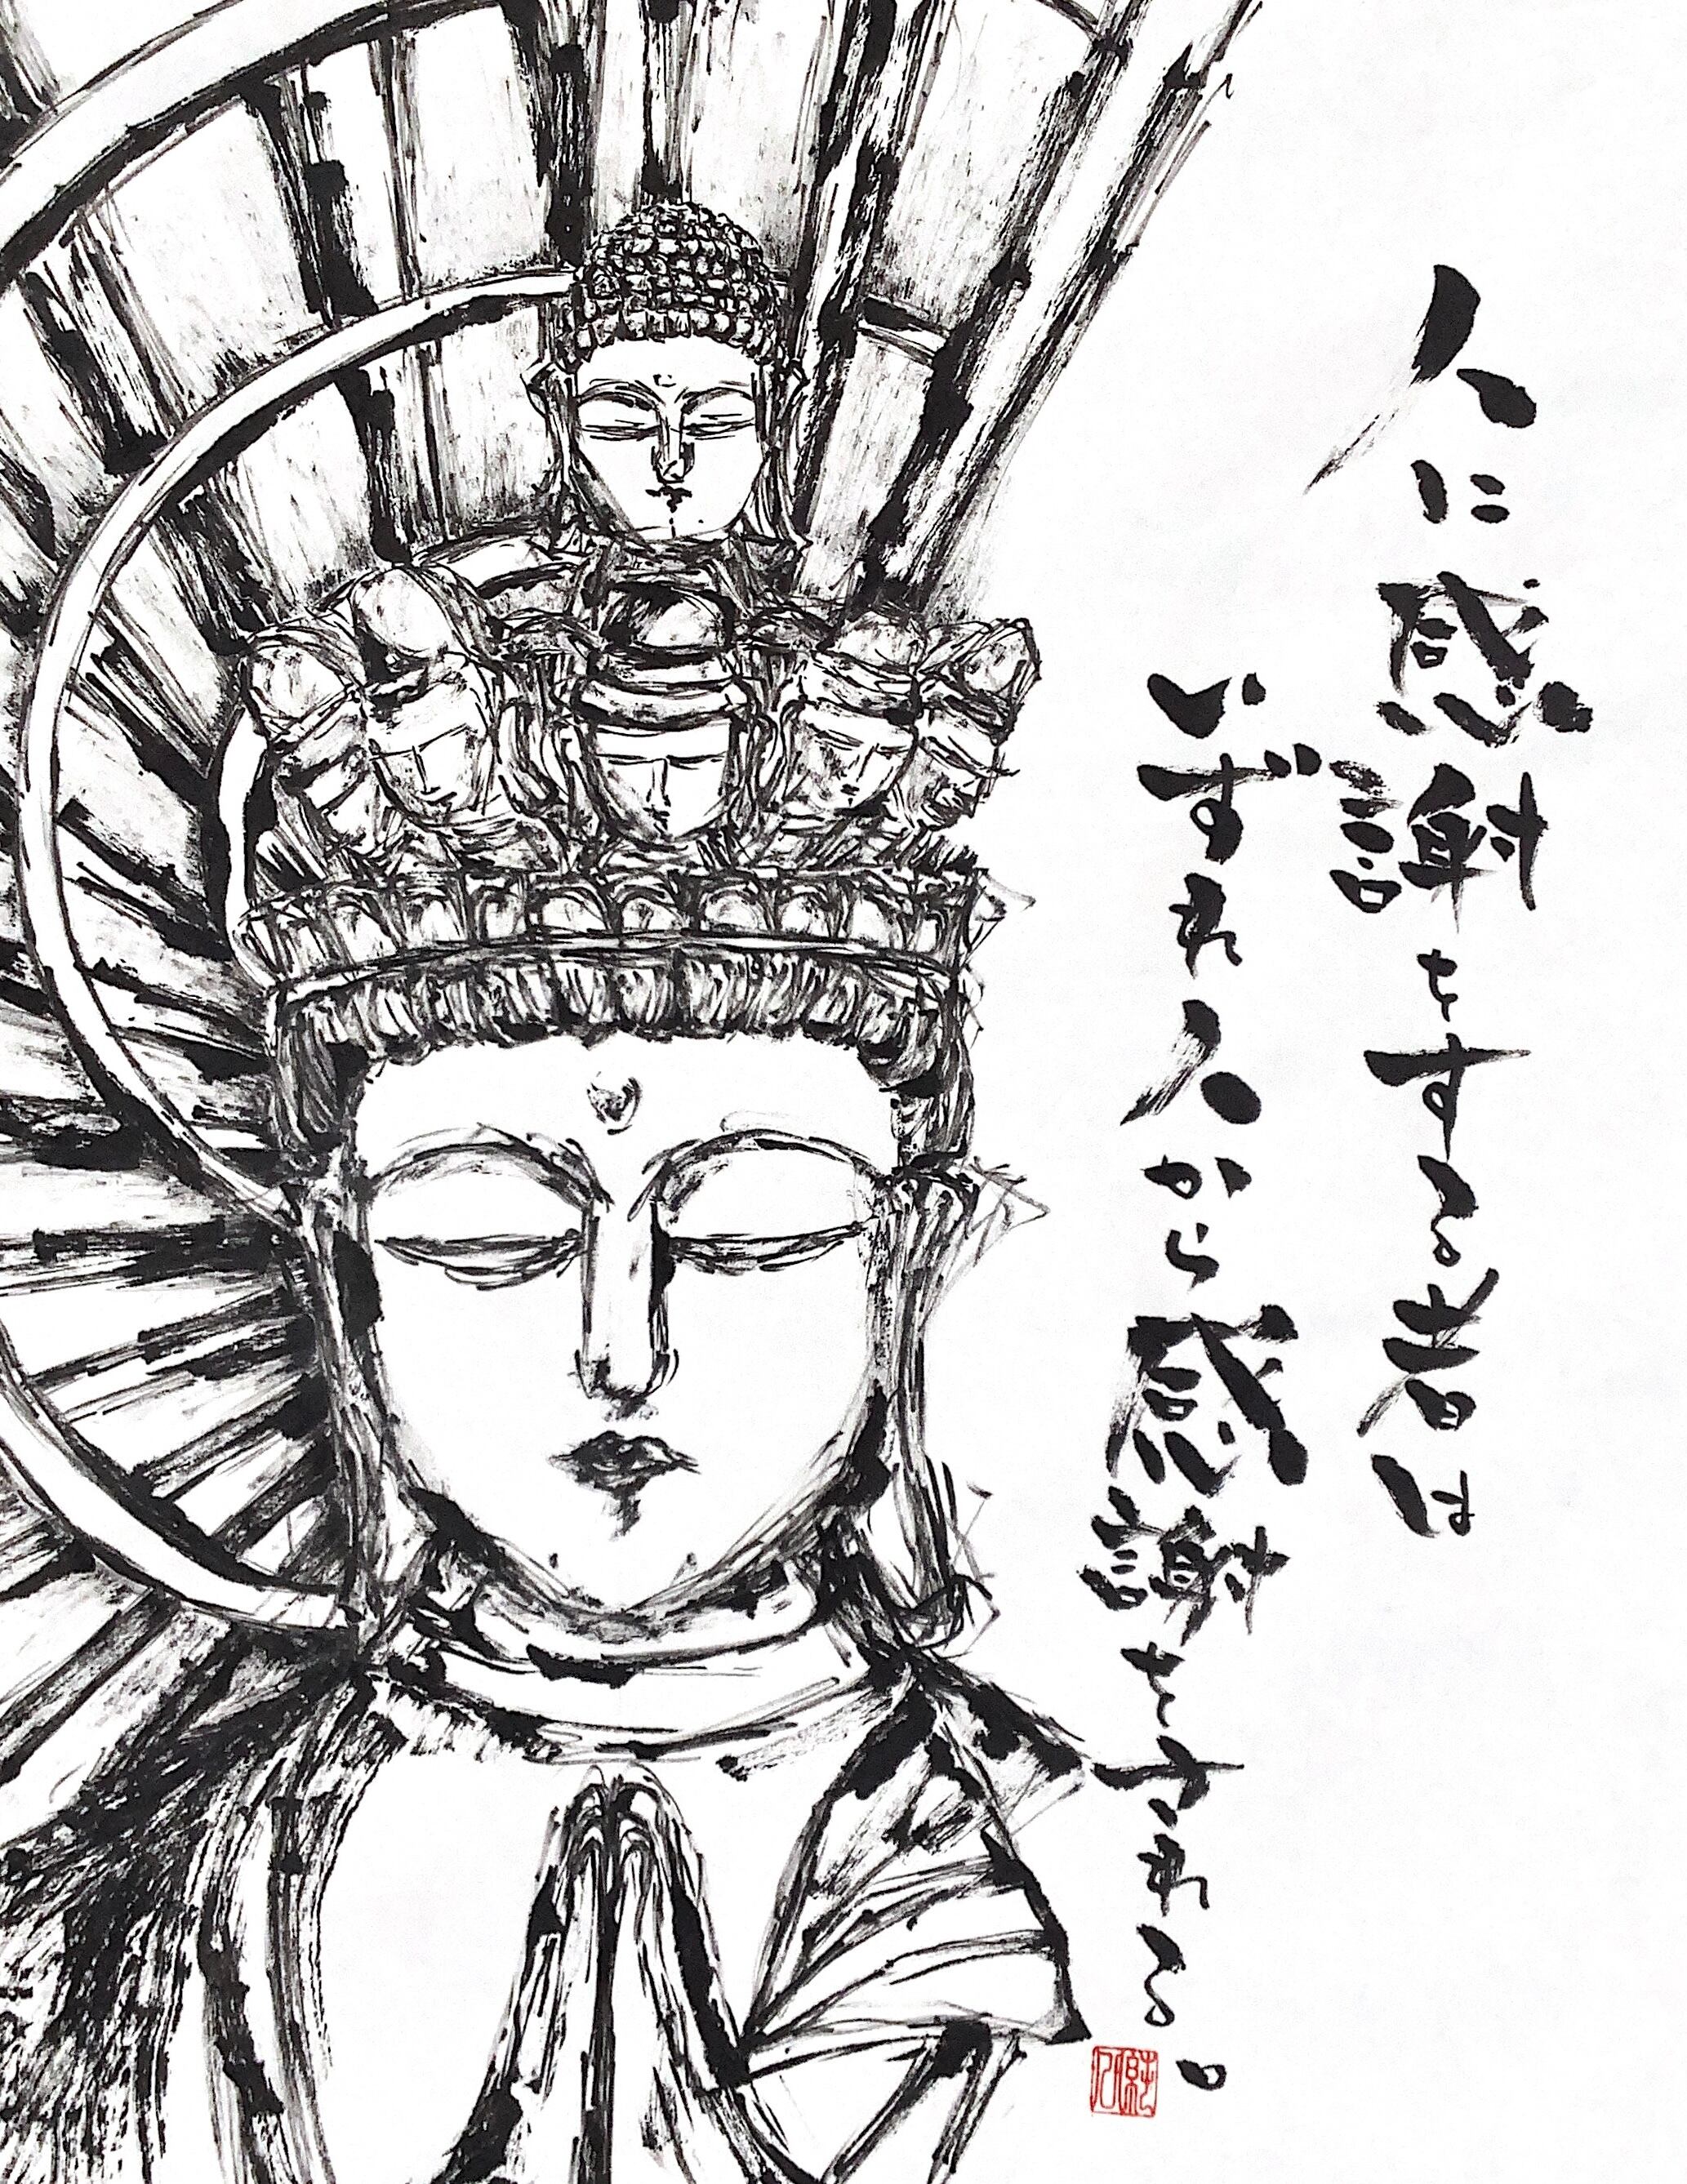 人に感謝をする者は
いずれ人から感謝をされる。